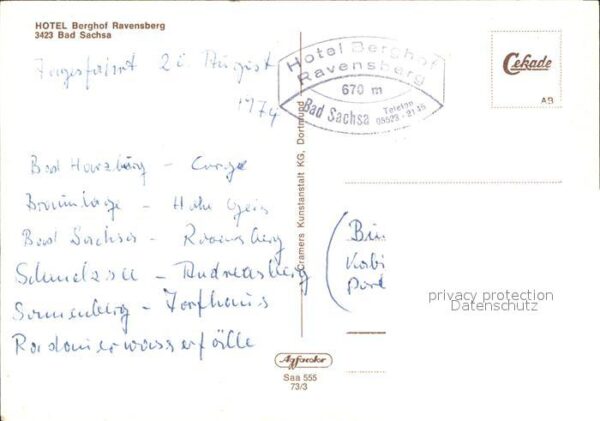 HOTEL Berghof Ravensberg
3423 Bad Sachsa
Tagesfahrt 2 August
1974
Bad Harzburg -
Braunlage - Hohe Geiß
Bad Sachsa - Ravensberg
Schmelzsee - Andreasberg
Sonnenberg - Torfhaus
Radauerwasserfälle
Hotel Berghof
Ravensberg
670 m
Bad Sachsa Telefon
05523 - 2145
Cekade
AB
Cramers Kunstanstalt KG, Dortmund
privacy protection
Datenschutz
Agfacolor
Saa 555
73/3